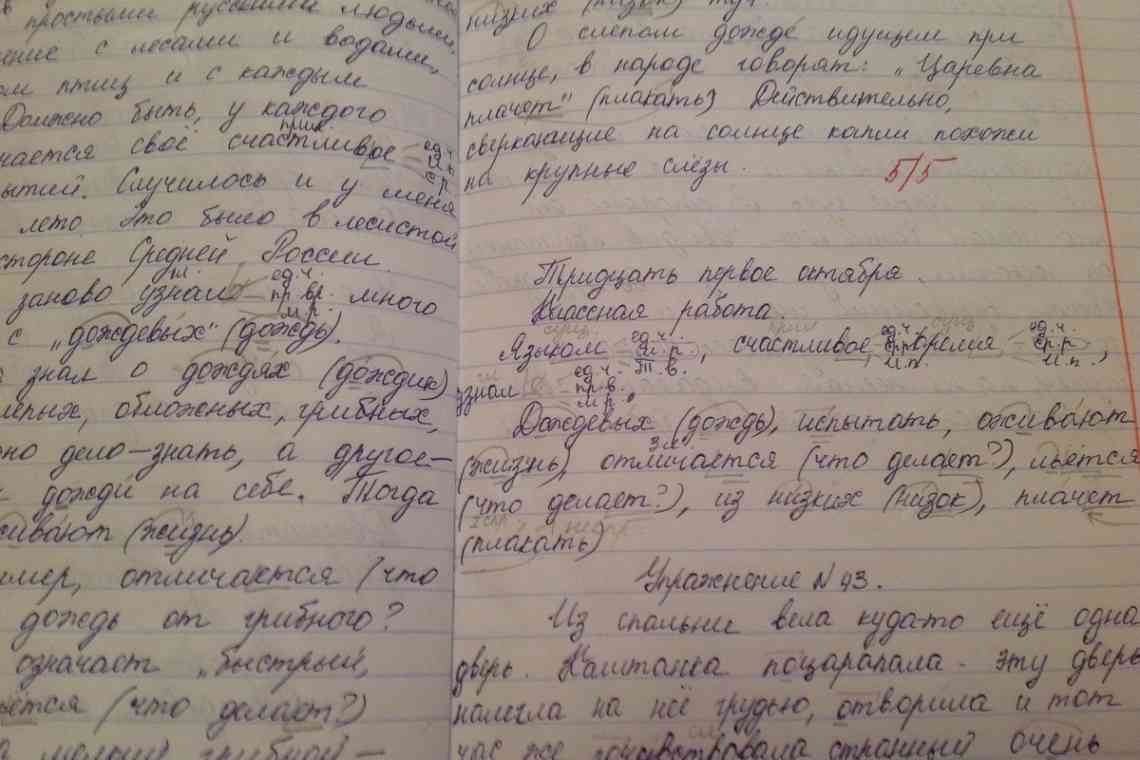 простыми русскими людьми,
с лесами и водами,
птиц и с каждым
Должно быть, у каждого
своё счастливое
Случилось и у меня
лето. Это было в лесистой
стороне Средней России.
заново узнал ед.ч. пр.вр. м.р. много
с „дождевых" (дождь).
знал о дождях (дождик)
обложных, грибных,
дело – знать, а другое –
дожди на себе. Тогда
(жизнь).
отличается (что
дождь от грибного?
означает „быстрый,
(что делает?)
грибной –
низких (низок) туч.
О слепом дожде идущем при
солнце, в народе говорят: „Царевна
плачет" (плакать) Действительно,
сверкающие на солнце капли похожи
на крупные слёзы.
5/5
Тридцать первое октября.
Классная работа
Языком ед.ч. м.р. Т.в., счастливое, ед.ч. ср.р И.п. время ед.ч. ср.р И.п.,
узнал ед.ч. пр.в. м.р.
Дождевых (дождь), испытать, оживают
(жизнь), отличается (что делает?), льётся
(что делает?), из низких (низок), плачет
(плакать)
Упражнение N 93.
Из спальни вела куда-то ещё одна
дверь. Каштанка поцарапала эту дверь
налегла на неё грудью, отворила и тот
час же почувствовала странный очень